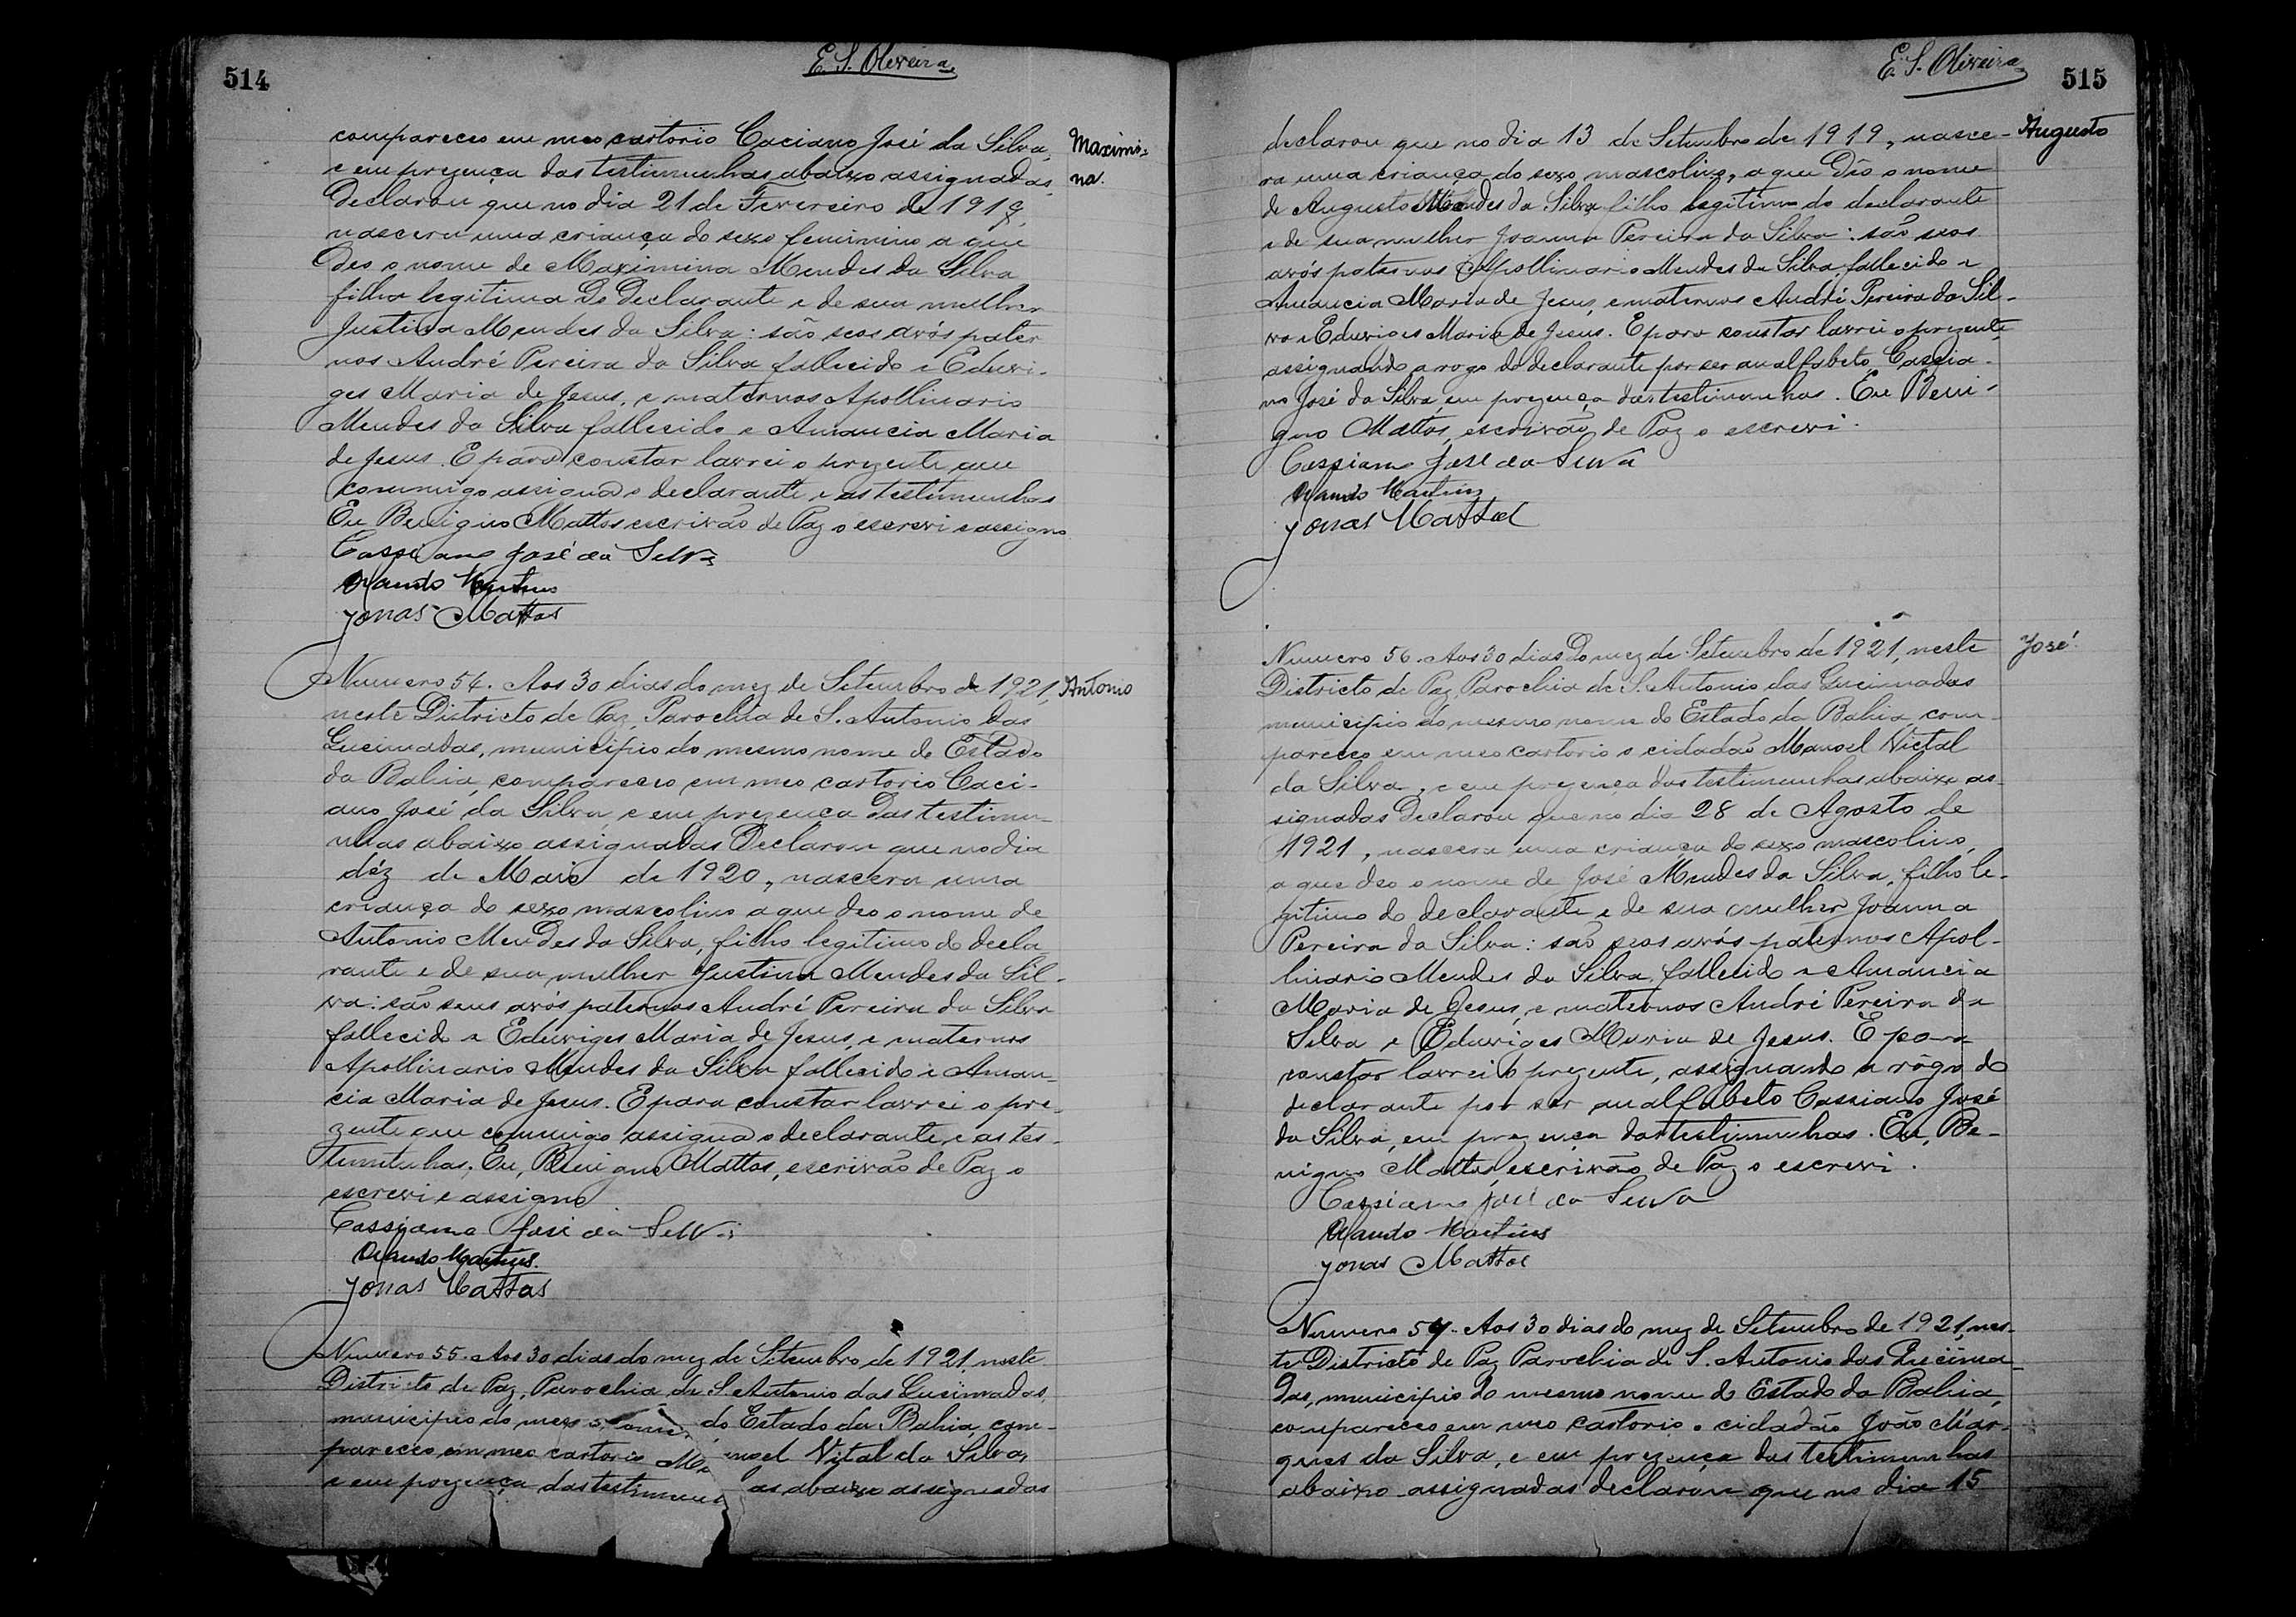 514
E. S. Oliveira
compareceo em meo cartorio Caciano José da Silva,
e em prezença das testimunhas abaixo assignadas,
Declarou que no dia 21 de Fevereiro de 1919,
nascera uma criança do sexo feminino a que
Deo o nome de Maximina Mendes da Silva
filha legitima Do Declarante e de sua mulher
Justina Mendes da Silva: são seos avós pater
nos André Pereira da Silva fallecido e Eduvi-
ges Maria de Jesus, e maternos Apollinario
Mendes da Silva fallecido e Amancia Maria
de Jesus. E para constar lavrei o prezente que
commigo assigna o declarante e as testimunhas
Eu Benigno Mattos escrivão de Paz o escrevi e assigno
Cassiano José da Silva
Orlando Martins
Jonas Mattos
Maximi-
na.
Numero 54. Aos 30 dias do mez de Setembro de 1921,
neste Districto de Paz, Parochia de S. Antonio das
Queimadas, municipio do mesmo nome do Estado
da Bahia, compareceo em meo cartorio Caci-
ano José da Silva, e em prezença Das testimu-
nhas abaixo assignadas Declarou que no dia
déz de Maio de 1920, nascera uma
criança do sexo mascolino a que deo o nome de
Antonio Mendes da Silva, filho legitimo do decla
rante e de sua mulher Justina Mendes da Sil-
va: são seus avós paternos André Pereira da Silva
fallecido e Eduviges Maria de Jesus, e maternos
Apollinario Mendes da Silva fallecido e Aman-
cia Maria de Jesus. E para constar lavrei o pre-
zente que commigo assigna o declarante e as tes-
timunhas. Eu, Benigno Mattos, escrivão de Paz o
escrevi e assigno
Cassiano José da Silva
Orlando Martins.
Jonas Mattos
Antonio
Numero 55. Aos 30 dias do mez de Setembro de 1921 neste
Districto de Paz, Parochia de S. Antonio das Queimadas,
municipio do mesmo nome, do Estado da Bahia, com-
pareceo em meo cartorio Manoel Vital da Silva,
e em prezença das testimunhas abaixo assignadas
E. S. Oliveira
515
declarou que no dia 13 de Setembro de 1919, nasce-
ra uma criança do sexo mascolino, a que Dêo o nome
de Augusto Mendes da Silva filho legitimo do declarante
e de sua mulher Joanna Pereira da Silva: são seos
avós paternos Apollinario Mendes da Silva fallecido e
Amancia Maria de Jesus, e maternos André Pereira da Sil-
va e Eduviges Maria de Jesus. E para constar lavrei o prezente,
assignando a rogo do declarante por ser analfabeto Cassia-
no José da Silva, em prezença das testimunhas. Eu Beni-
gno Mattos, escrivão de Paz o escrevi.
Cassiano José da Silva
Orlando Martins
Jonas Mattos
Augusto
Numero 56. Aos 30 dias Do mez de Setembro de 1921, neste
Districto de Paz, Parochia de S. Antonio das Queimadas
municipio do mesmo nome do Estado da Bahia, com-
pareceo em meo cartorio o cidadão Manoel Victal
da Silva, e em prezença das testimunhas abaixo as-
signadas Declarou que no dia 28 de Agosto de
1921, nascera uma criança do sexo mascolino,
a que deo o nome de José Mendes da Silva, filho le-
gitimo do declarante e de sua mulher Joanna
Pereira da Silva: são seos avós paternos Apol-
linario Mendes da Silva, fallecido e Amancia
Maria de Jesus, e maternos André Pereira da
Silva e Eduviges Maria de Jesus. E para
constar lavrei o prezente, assignando a rôgo do
declarante por ser analfabeto Cassiano José
da Silva, em prezença das testimunhas. Eu, Be-
nigno Mattos, escrivão de Paz o escrevi.
Cassiano José da Silva
Orlando Martins
Jonas Mattos
José
Numero 57. Aos 30 dias do mez de Setembro de 1921, nes-
te Districto de Paz Parochia de S. Antonio das Queima-
das, municipio do mesmo nome do Estado da Bahia,
compareceo em meo cartorio o cidadão João Mar-
ques da Silva, e em prezença das testimunhas
abaixo assignadas declarou que no dia 15